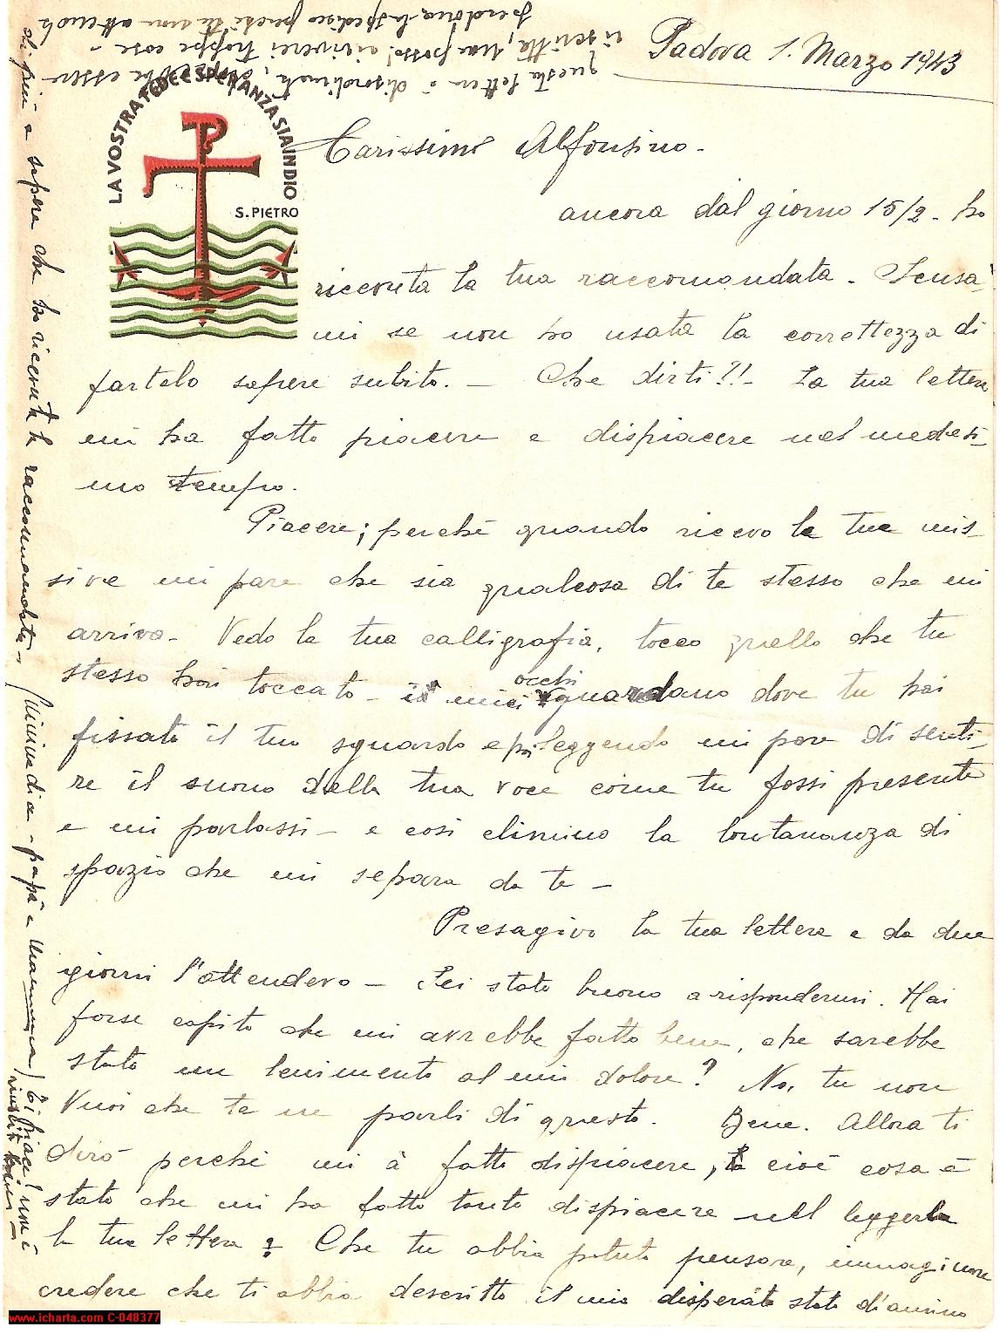 Padova 1. Marzo 1943
LA VOSTRA FEDE E SPERANZA SIA IN DIO
S. PIETRO
Carissimo Alfonsino.
ancora dal giorno 15/2. ho
ricevuta la tua raccomandata. Scusa-
mi se non ho usata la correttezza di
fartelo sapere subito. — Che dirti?!! La tua lettera
mi ha fatto piacere e dispiacere nel medesi-
mo tempo.
Piacere; perchè quando ricevo le tue mis-
sive mi pare che sia qualcosa di te stesso che mi
arriva. Vedo la tua calligrafia, tocco quello che tu
stesso hai toccato — i miei occhi guardano dove tu hai
fissato il tuo sguardo e poi leggendo mi pare di senti-
re il suono della tua voce come tu fossi presente
e mi parlassi — e così elimino la lontananza di
spazio che mi separa da te —
Presagivo la tua lettera e da due
giorni l'attendevo — Sei stato buono a rispondermi. Hai
forse capito che mi avrebbe fatto bene, che sarebbe
stato un lenimento al mio dolore? No, tu non
vuoi che te ne parli di questo. Bene. Allora ti
dirò perchè mi à fatto dispiacere, cioè cosa è
stato che mi ha fatto tanto dispiacere nel leggerla
la tua lettera? Che tu abbia potuto pensare, immaginare
credere che ti abbia descritto il mio disperato stato d'animo
di più e sapere che ho ricevuta la raccomandata —
papà e mamma
Ti piace! non è
questa lettera è disordinata,
riscritta, ma posso! ci vorrei troppe cose —
perdona la spedisco perchè te non attenda
www.icharta.com C-048377